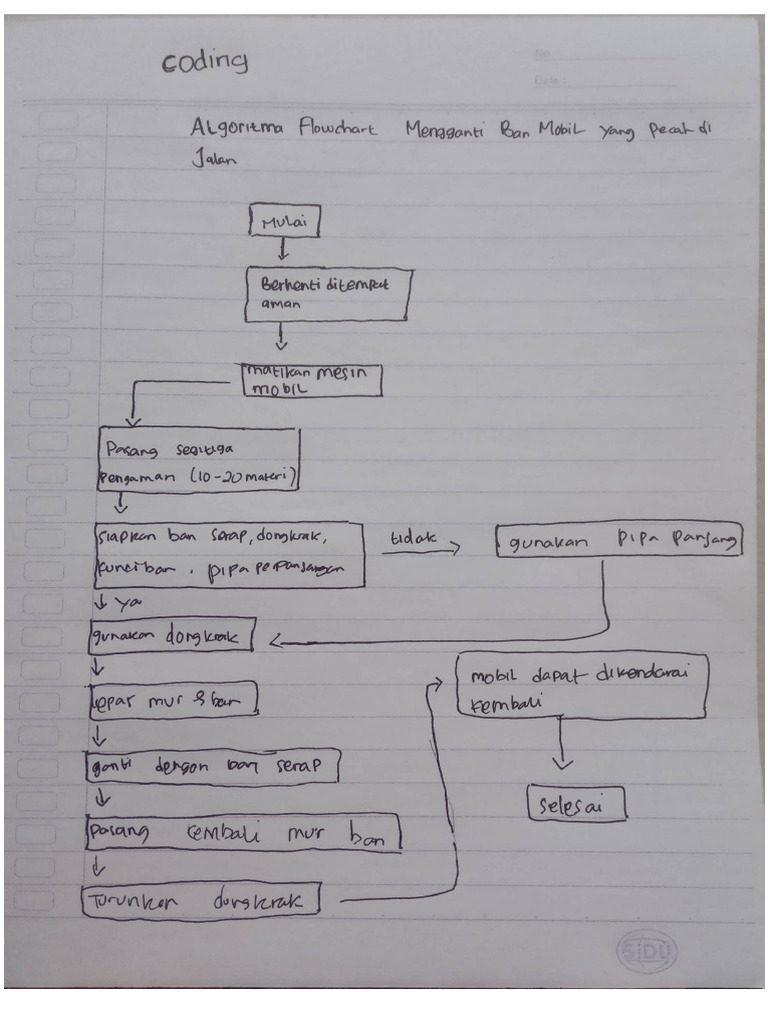 coding
No.
Date:
Algoritma Flowchart Mengganti Ban Mobil yang Pecah di
Jalan
Mulai
Berhenti ditempat
aman
matikan mesin
mobil
Pasang segitiga
Pengaman (10-20 materi)
siapkan ban serap, dongkrak,
kunci ban, pipa perpanjangan
tidak
gunakan pipa panjang
ya
gunakan dongkrak
lepas mur & ban
ganti dengan ban serap
pasang kembali mur ban
Turunkan dongkrak
mobil dapat dikendarai
kembali
selesai
SIDU